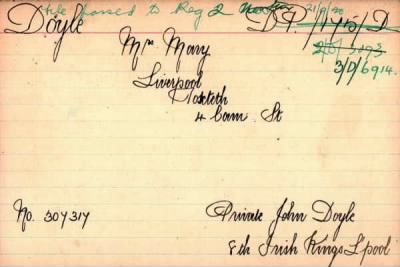 file passed to Reg 2 21/9/20
Doyle
Mrs Mary
Liverpool
Toxteth
4 Cam St
3/D/6914.
No. 307317
Private John Doyle
8th Irish Kings L'pool